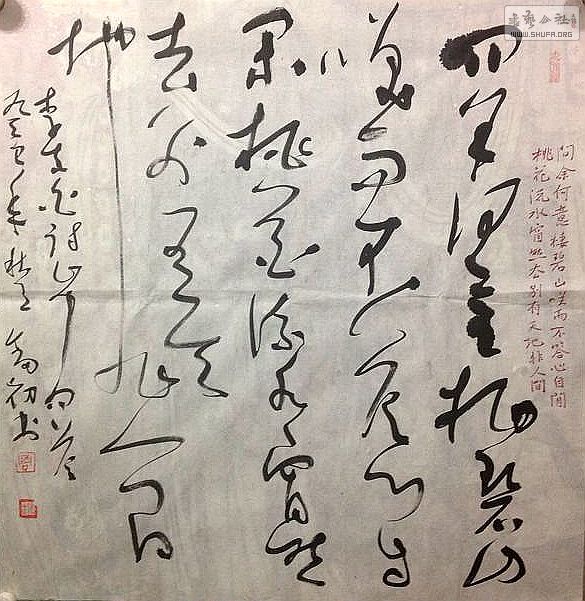 书艺公社
WWW.SHUFA.ORG
问余何意棲碧山笑而不答心自闲
桃花流水窅然去别有天地非人间
问余何意栖碧山
笑而不答心自
闲桃花流水窅然
去别有天
地非人间
李太白诗山中问答
癸巳年秋初书